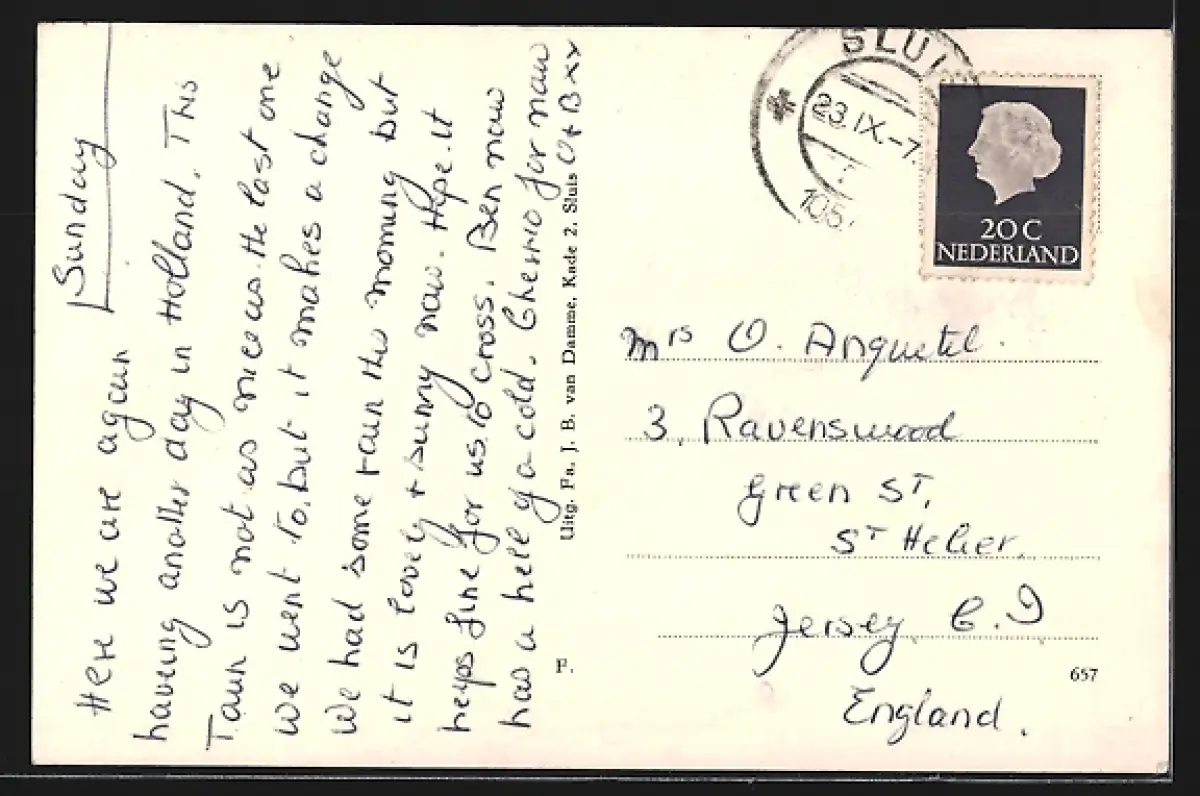 Sunday
Here we are again
having another day in Holland. This
Town is not as nice as the last one
we went to, but it makes a change
We had some rain this morning but
it is lovely & sunny now. Hope it
keeps fine for us to cross. Ben now
has a hell of a cold. Cheerio for now
O & B xx
Uitg. Fa. J. B. van Damme, Kade 2. Sluis
F.
SLUI
23.IX.-7
105
20 C
NEDERLAND
Mrs O. Anquetil.
3, Ravenswood
Green St,
St Helier.
Jersey C.I
England.
657